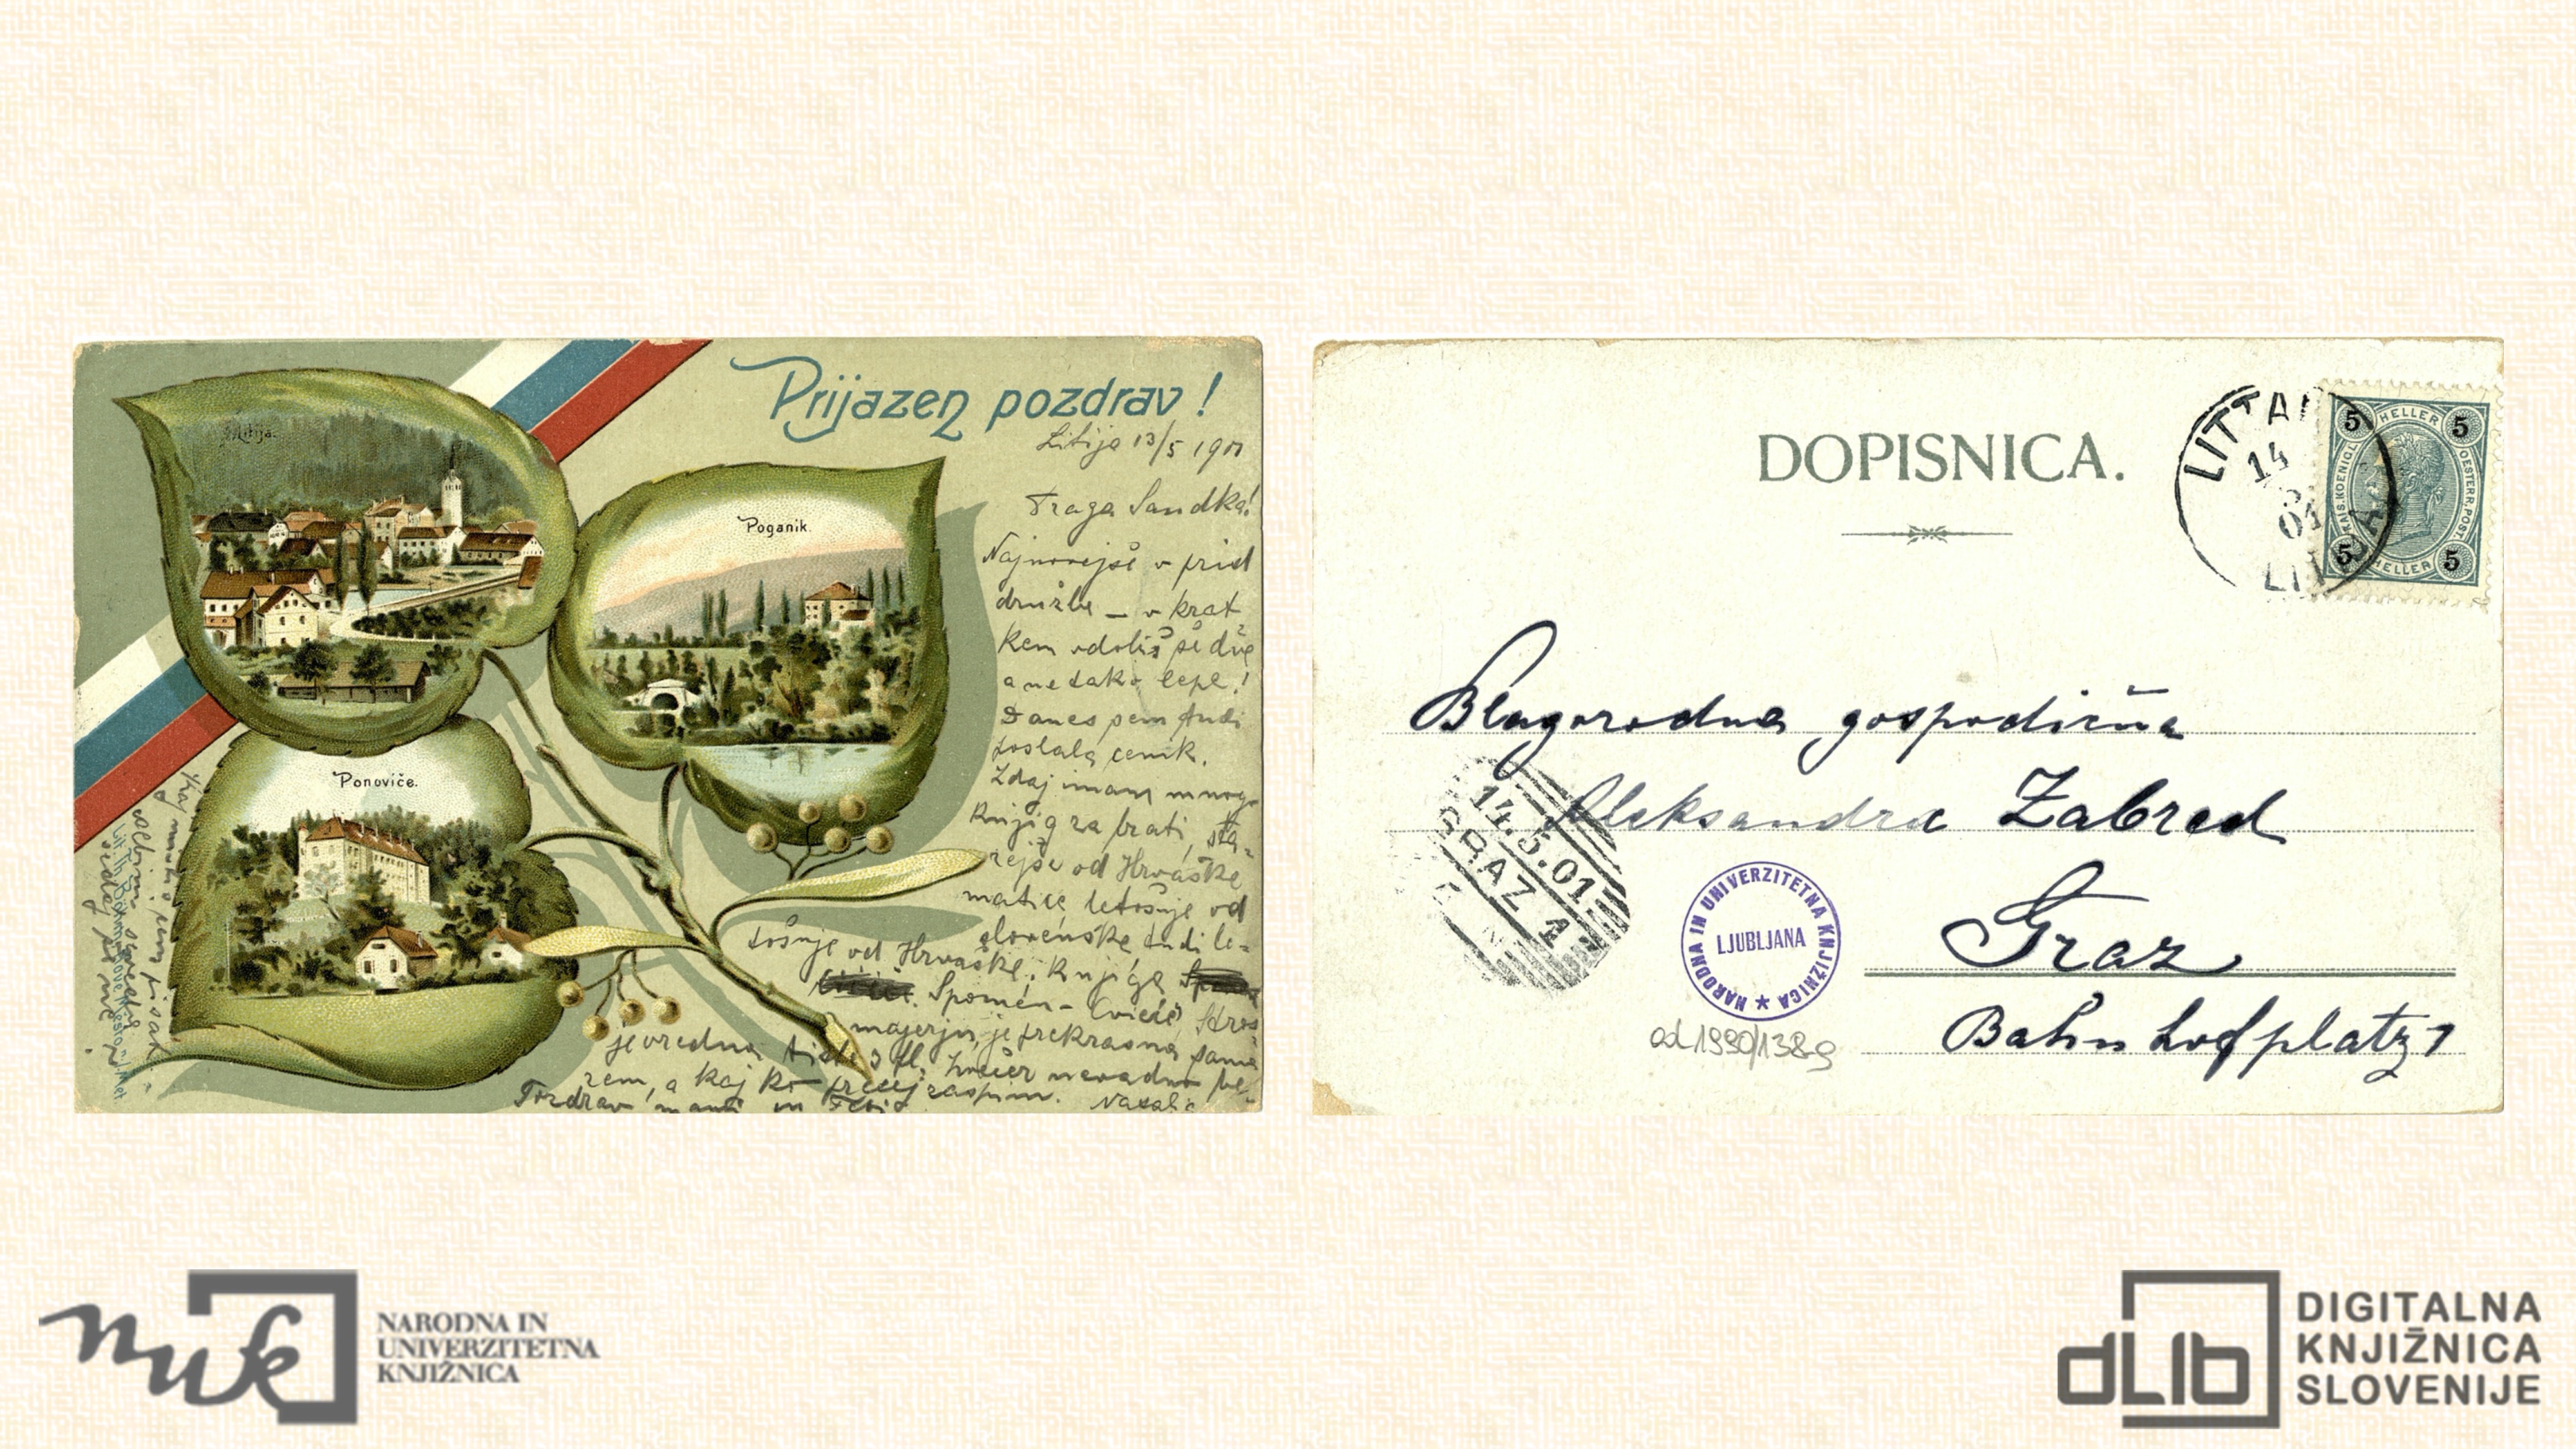 Prijazen pozdrav!
Litija 13/5 1901
Draga Sandka!
Najnovejše v prid
družbe — v krat
kem dobiš še dve
a ne tako lepe!
Danes sem tudi
poslala cenik.
Zdaj imam mnogo
knjig za brati, sta-
rejše od Hrvaške
matice, letošnje od
slovenske tudi le-
tošnje od Hrvaške. Knjiga
Spomen-Cvieće, Stros
majerju, je prekrasna sama
je vredna 3 fl. Zvečer navadno be-
rem, a kaj ko precej zaspim.
Pozdrav mami in
Litija.
Poganik.
Ponoviče.
DOPISNICA.
LITTAI
14
5
01
LITIJA
5 HELLER 5
KAIS. KOENIGL. OESTERR. POST
5 HELLER 5
Blagorodna gospodična
Aleksandra Zabred
Graz
Bahnhofplatz 1
14.5.01
GRAZ
NARODNA IN UNIVERZITETNA KNJIŽNICA ★
LJUBLJANA
od 1990/1389
nuk
NARODNA IN
UNIVERZITETNA
KNJIŽNICA
dLib
DIGITALNA
KNJIŽNICA
SLOVENIJE